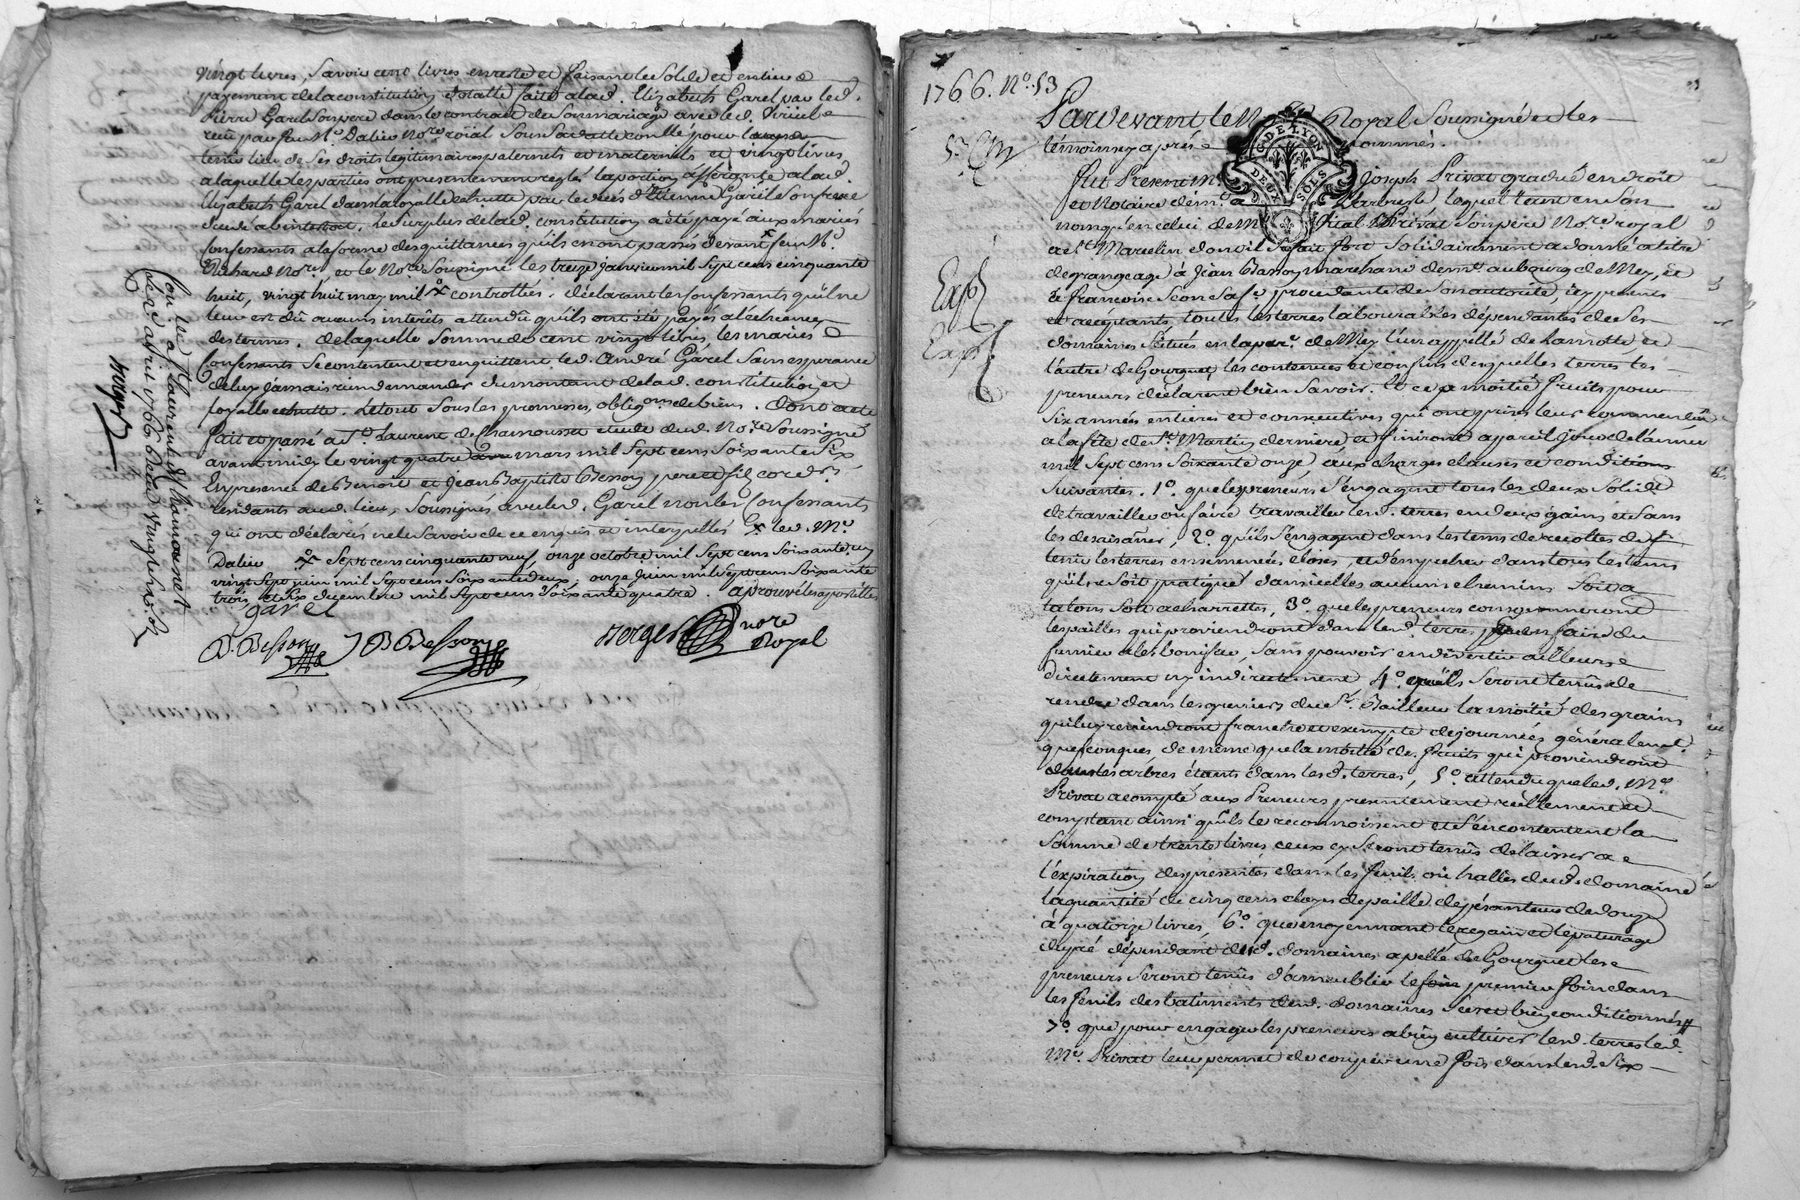 vingt livres, Savoir cent livres en reste et faisant le Solde et entier
payement de la constitution dotalle faitte a lad. Elizabeth Garel par led.
Pierre Garel Son pere dans le contrat de Son mariage avec led.
reçu par feu Me. Dalieu Nore. roïal Sous Sa datte controllé pour lad.
tenir lieu de Ses droits legitimaires paternels et maternels et vingt livres
a laquelle les parties ont presentement reglé la portion afferante a lad.
Elizabeth Garel dans la loyalle echutte par le décès d'Etienne Garel Son frere
decedé ab intestat. Le Surplus de lad. constitution a été payé aux mariés
confessants a la forme des quittances qu'ils en ont passés devant x feu Me.
Richard Nore. et le Nore. Soussigné les treize janvier mil Sept cens cinquante
huit, vingt huit may mil x controllées. déclarant les confessants qu'il ne
leur est dû aucuns interêts attendu qu'ils ont été payés a l'échéance
des termes. de laquelle Somme de cent vingt livres les mariés
confessants Se contentent et en quittent led. André Garel Sans esperance
de luy jamais rien demander du montant de lad. constitution et
loyalle echutte. Le tout Sous les promesses, obligons. de biens. Dont acte
fait et passé a St. Laurent de Chamousset etude dud. Nore. Soussigné
avant midy le vingt quatre mars mil Sept cens Soixante Six,
En presence de Benoit et Jean Baptiste Besson pere et fils cordrs.
residants aud. lieu, Soussignés avec led. Garel non les confessants
qui ont déclarés ne le Savoir de ce enquis et interpellés x led. Me.
Dalieu x Sept cens cinquante neuf, onze octobre mil Sept cens Soixante un
vingt Sept juin mil Sept cens Soixante deux, onze juin mil Sept cens Soixante
trois, et Six decembre mil Sept cens Soixante quatre. aprouvé les apostilles
garel
B. Besson J B Besson
nore
Royal
Con. le a St laurent de Chamousset
le 2. avril 1766. Reçu vingt
1766. No. 53
Pardevant le No Royal Soussigné et les
témoins cy après nommés.
fut Present Me. Joseph Privat gradué en droit
et Notaire demt. a Larbresle lequel tant en Son
nom qu'en celui de Me. Vital Privat Son père Nore. royal
a St. Marcelin dont il Se fait fort Solidairement a donné a titre
de grangeage à Jean Basson marchand demt. au bourg de Meÿ, et
à françoise Son Se fe. procedante de Son autorité, icy presents
et acceptants toutes les terres labourables dépendantes de Ses
domaines Situés en la parr. de Meÿ l'un appellé de Lamotte et
l'autre de Gourguet, les contenues et confins desquelles terres les
preneurs déclarent bien Savoir. Et ce a moitié fruits pour
Six années entieres et consecutives qui ont pris leur commencemt.
a la fête de St. Martin derniere et finiront a pareil jour de l'année
mil Sept cens Soixante onze, aux charges clauses et conditions
Suivantes. 1o. que les preneurs S'engagent tous les deux Solidt.
de travailler ou faire travailler lesd. terres en deux gains et Sans
les desaisoner, 2o. qu'ils S'engagent dans les tems de recoltes de
tenir les terres ensemencées closes, et d'empecher dans tous les tems
qu'il ne Soit pratiqué dans icelles aucuns chemins Soit a
talons Soit a charrettes, 3o. que les preneurs consommeront
les pailles qui proviendront dans lesd. terres pour en faire du
fumier et les bonifier, Sans pouvoir en divertir ailleurs
directement ny indirectement 4o. qu'ils Seront tenüs de
rendre dans les greniers du Sr. Bailleur la moitié des grains
qui luy reviendront franche et exempte de journées generalement
quelconques de même que la moitié des fruits qui proviendront
dans les arbres étants dans lesd. terres, 5o. attendu que led. Me.
Privat a compté aux Preneurs presentement réellement et
comptant ainsi qu'ils le reconnoissent et S'en contentent la
Somme de trente livres ceux cy Seront tenüs de laisser a
l'expiration des presentes dans les fenils ou halles dud. domaine
la quantité de cinq cens cloyes de paille de pesanteur de douze
à quatorze livres, 6o. que moyennant le regain et le pâturage
du pré dépendant dud. domaine apellé de Gourguet les
preneurs Seront tenüs d'ameubler le premier foin dans
les fenils des batiments dud. domaines Sec et bien conditionnés
7o. que pour engager les preneurs a bien cultiver lesd. terres led.
Me. Privat leur permet de couper une fois dans lesd. Six
G. DE LYON
DEUX SOLS